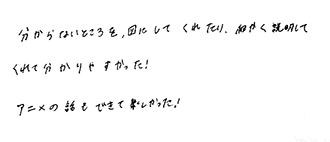 分からないところを,図にしてくれたり、細かく説明して
くれて分かりやすかった!
アニメの話もできて楽しかった!